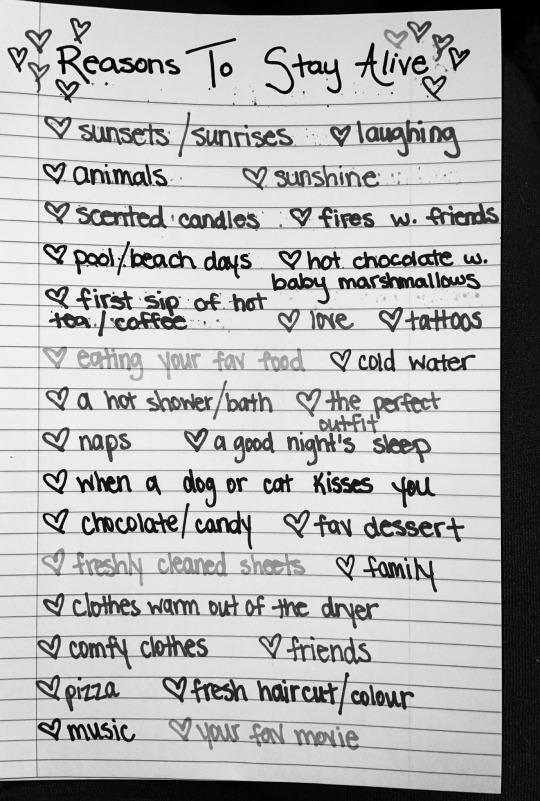 Reasons To Stay Alive
sunsets/sunrises laughing
animals sunshine
scented candles fires w. friends
pool/beach days hot chocolate w.
baby marshmallows
first sip of hot
tea/coffee love tattoos
eating your fav food cold water
a hot shower/bath the perfect
outfit
naps a good night's sleep
when a dog or cat kisses you
chocolate/candy fav dessert
freshly cleaned sheets family
clothes warm out of the dryer
comfy clothes friends
pizza fresh haircut/colour
music your fav movie